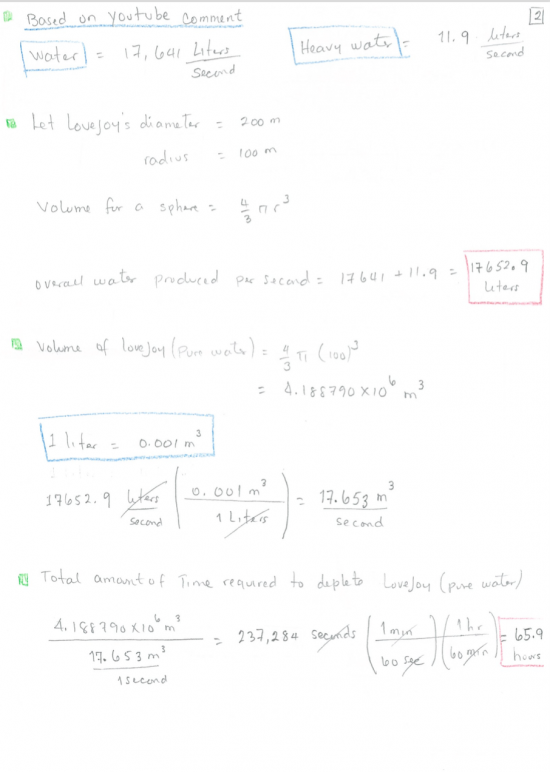 Based on YouTube Comment
2
Water = 17,641 Liters/Second
Heavy water = 11.9 liters/second
Let Lovejoy's diameter = 200 m
radius = 100 m
Volume for a sphere = 4/3 π r³
overall water produced per second = 17641 + 11.9 = 17652.9 liters
Volume of lovejoy (Pure water) = 4/3 π (100)³
= 4.188790 x 10⁶ m³
1 liter = 0.001 m³
17652.9 liters/second (0.001 m³/1 Liters) = 17.653 m³/second
Total amant of Time required to deplete Lovejoy (pure water)
4.188790 x 10⁶ m³/(17.653 m³/1 second) = 237,284 seconds (1 min/60 sec) (1 hr/60 min) = 65.9 hours